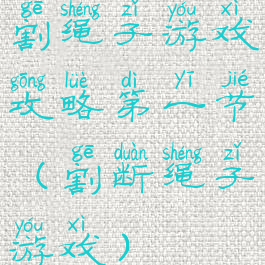 gē shéng zǐ yóu xì
割绳子游戏
gōng lüè dì yī jié
攻略第一节
gē duàn shéng zǐ
（割断绳子
yóu xì
游戏）